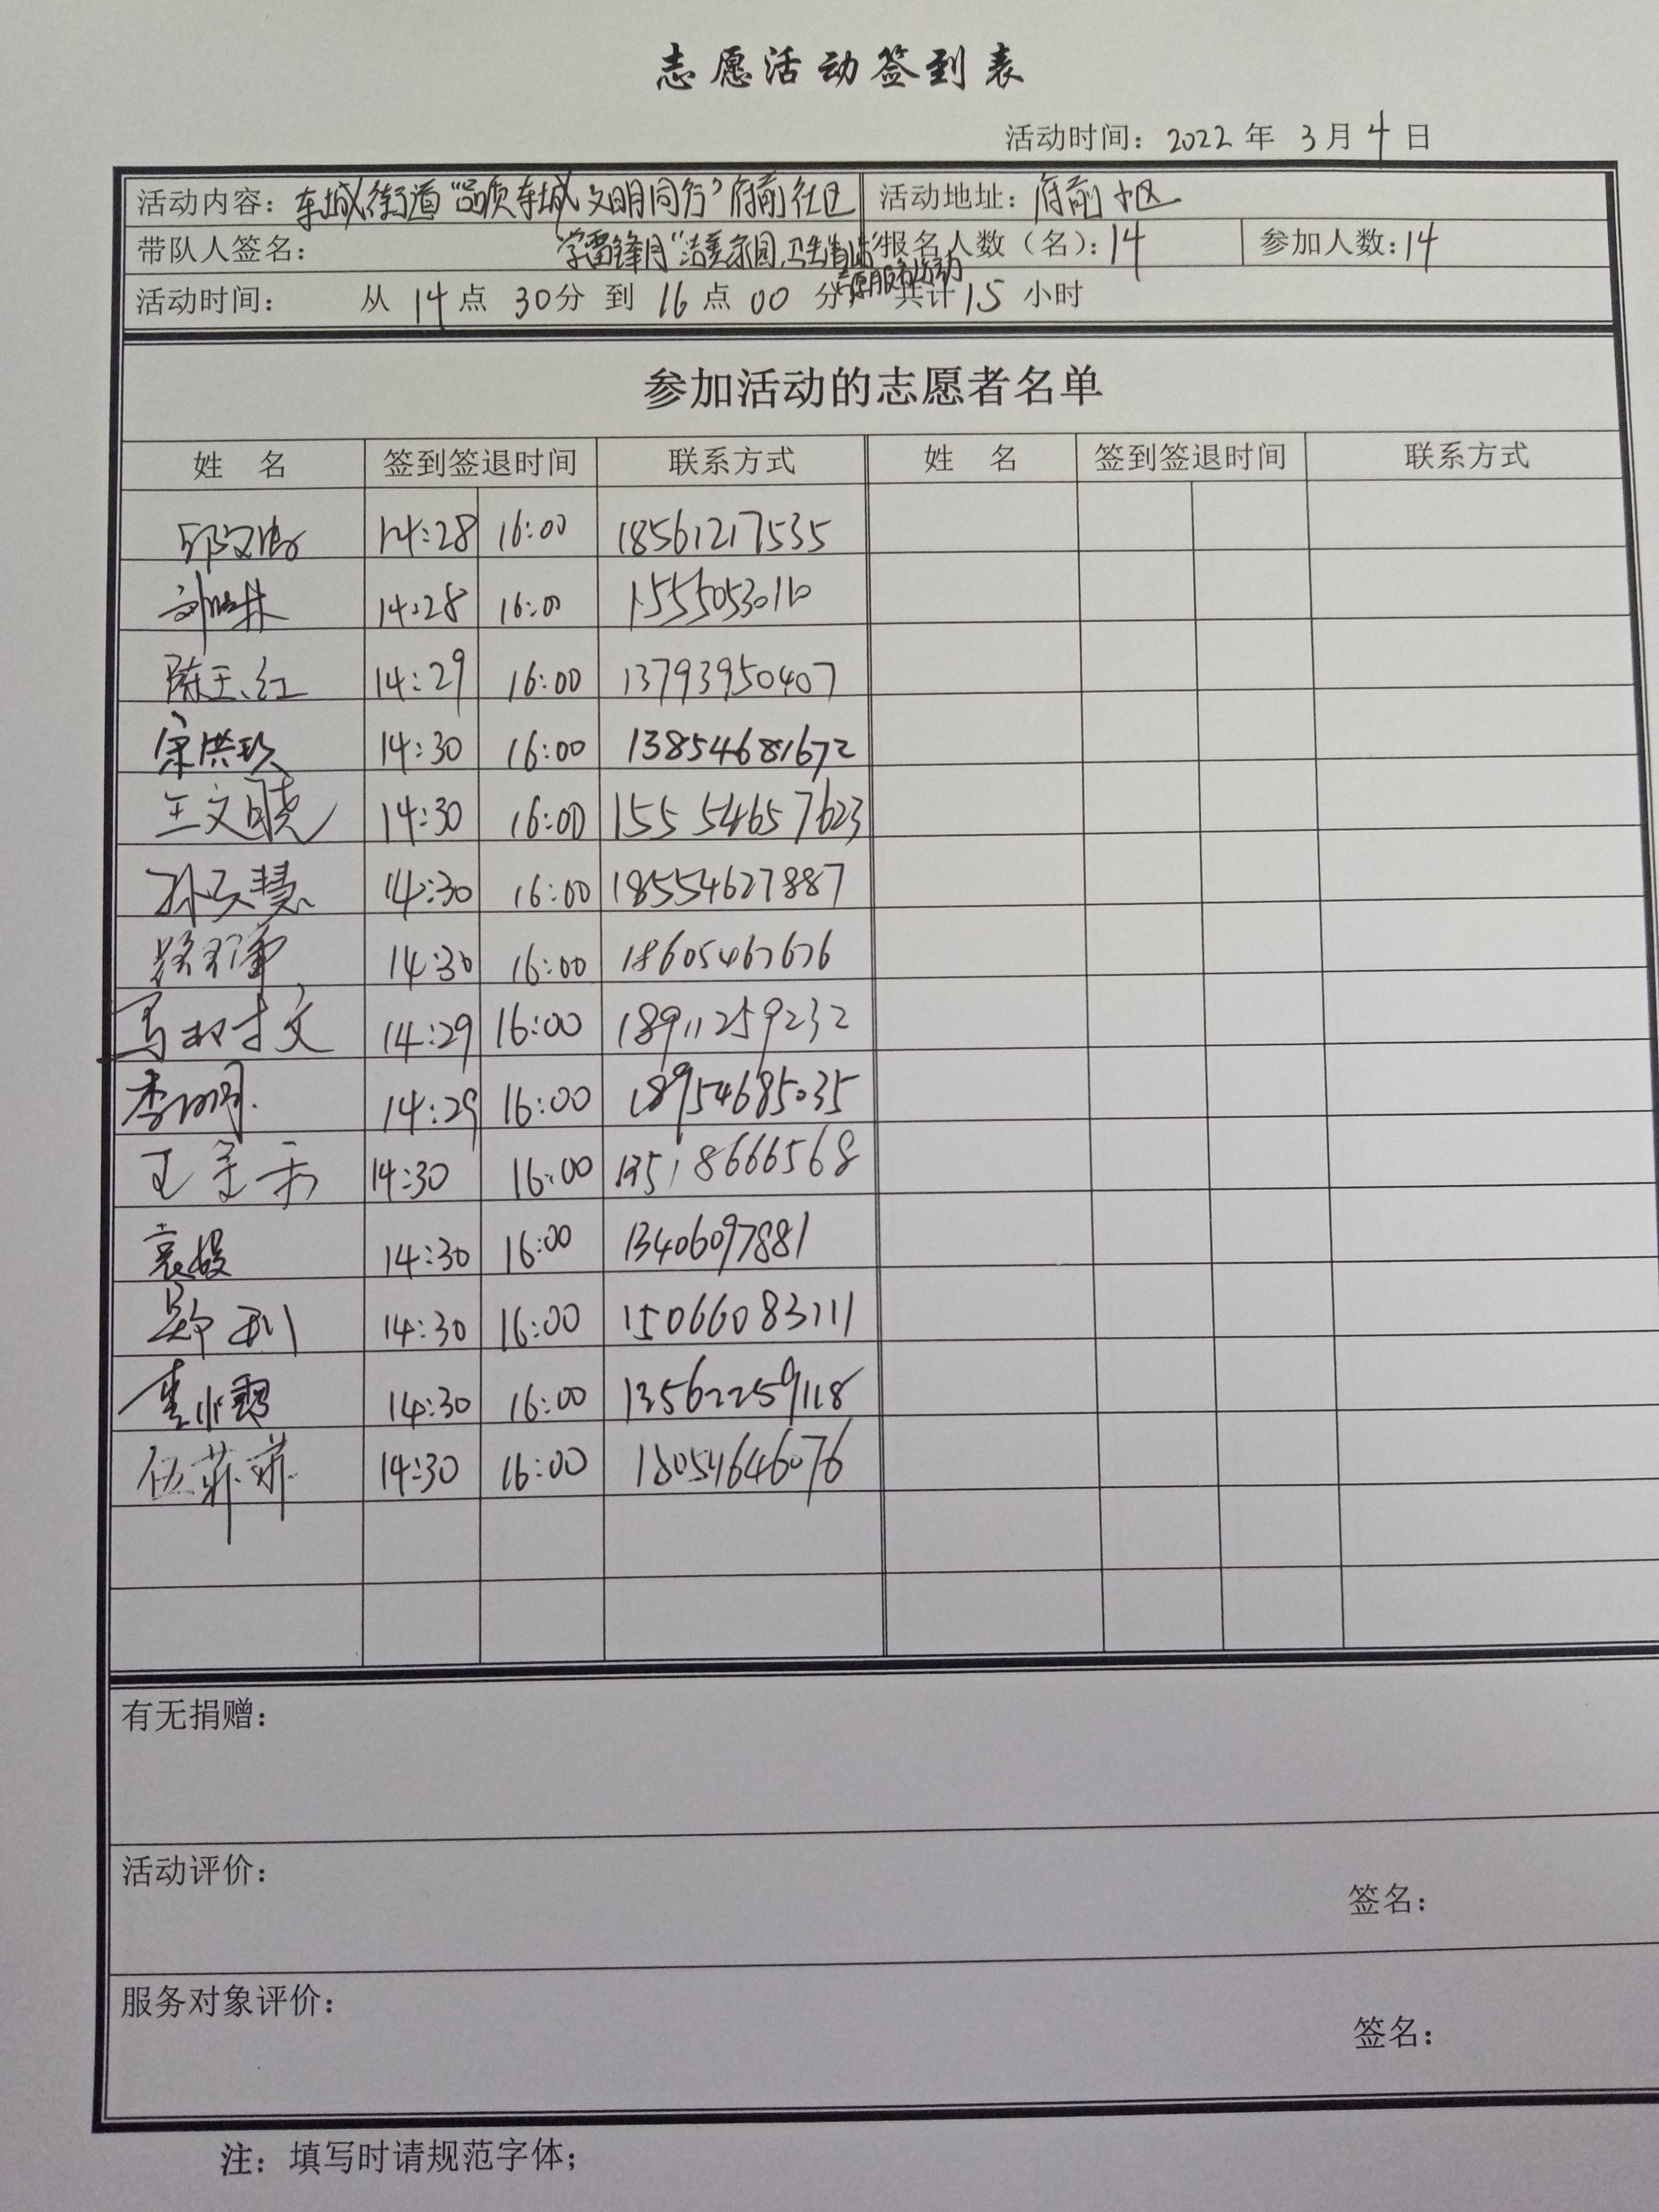 志愿活动签到表
活动时间：2022 年 3 月 4 日
活动内容：东城街道“品质东城 文明同行”府前社区 活动地址：府前社区
学雷锋月“洁美家园，卫生清洁”
志愿服务活动
带队人签名： 报名人数（名）：14 参加人数：14
活动时间： 从 14 点 30 分 到 16 点 00 分， 共计 1.5 小时
参加活动的志愿者名单
姓 名 签到签退时间 联系方式 姓 名 签到签退时间 联系方式
14:28 16:00 18561217535
14:28 16:00
陈玉红 14:29 16:00 13793950407
宋洪玖 14:30 16:00 13854681672
王文晓 14:30 16:00 155 5465 7623
孙文慧 14:30 16:00 18554627887
14:30 16:00 18605467676
马树文 14:29 16:00 18911259232
李明 14:29 16:00 18954685035
14:30 16:00 13518666568
袁媛 14:30 16:00 13406097881
郑利 14:30 16:00 15066083111
14:30 16:00 13562259118
伍菲菲 14:30 16:00 18054646076
有无捐赠：
活动评价：
签名：
服务对象评价：
签名：
注：填写时请规范字体；